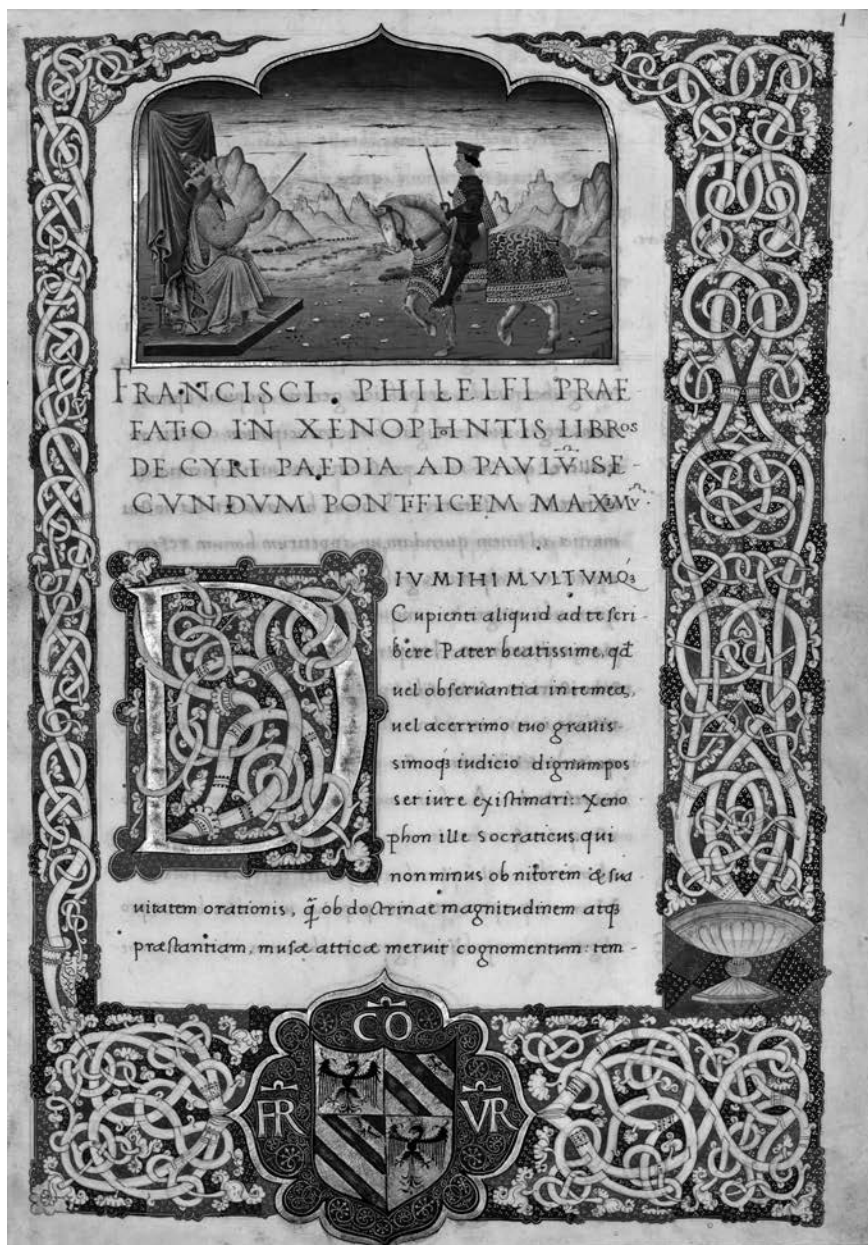 1
FRANCISCI. PHILELFI PRAE
FATIO IN XENOPHONTIS LIBROS
DE CYRI PAEDIA AD PAVLV̄ SE-
CVNDVM PONTIFICEM MAXIMV̄.
DIV MIHI MVLTVMQꝫ
Cupienti aliquid ad te scri-
bere Pater beatissime, qđ
uel obseruantia in te mea,
uel acerrimo tuo grauis
simoqꝫ iudicio dignum pos
set iure existimari: Xeno
phon ille Socraticus qui
non minus ob nitorem & sua
uitatem orationis, q̄ ob doctrinae magnitudinem atqꝫ
præstantiam, musæ atticæ meruit cognomentum: tem-
CO
FR VR